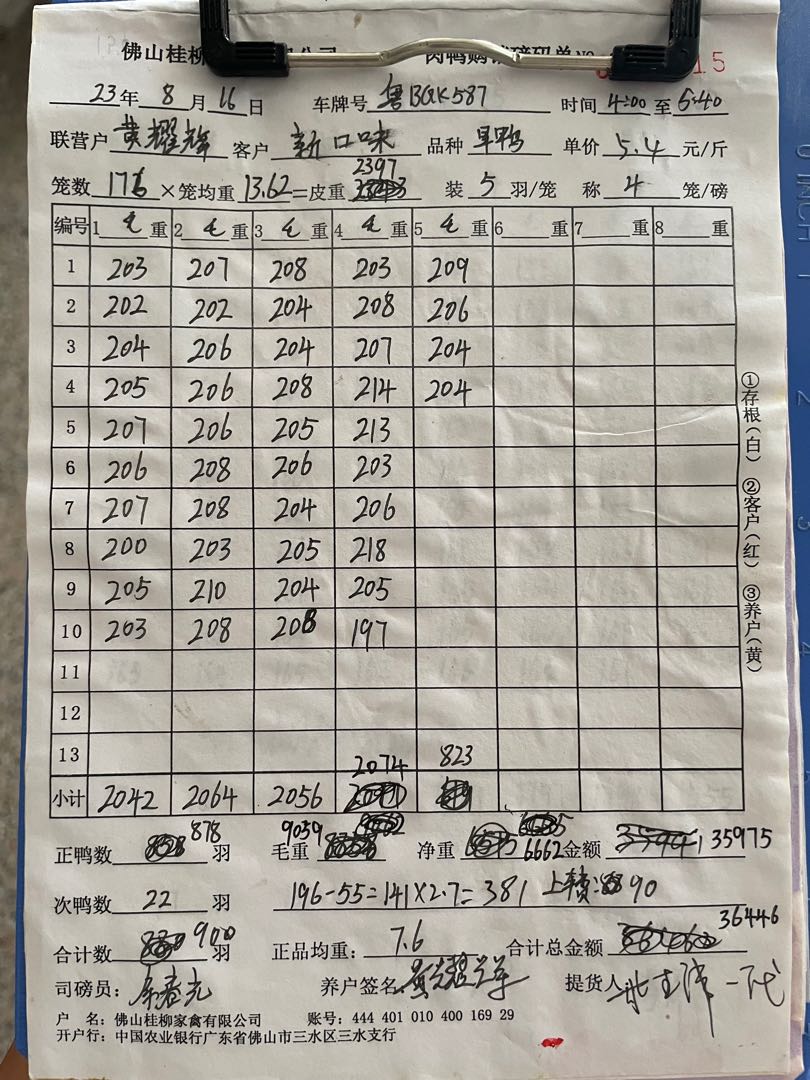 佛山桂柳 公司 肉鸭购销磅码单NO 15
23年 8月 16日 车牌号 粤BGK587 时间 4:00 至 5:40
联营户 黄耀辉 客户 新口味 品种 旱鸭 单价 5.4 元/斤
2397
笼数 176 ×笼均重 13.62 =皮重 装 5 羽/笼 称 4 笼/磅
编号 1 毛 重 2 毛 重 3 毛 重 4 毛 重 5 毛 重 6 重 7 重 8 重
1 203 207 208 203 209
2 202 202 204 208 206
3 204 206 204 207 204
4 205 206 208 214 204
5 207 206 205 213
6 206 208 206 203
7 207 208 204 206
8 200 203 205 218
9 205 210 204 205
10 203 208 208 197
11
12
13
2074 823
小计 2042 2064 2056
正鸭数 878 羽 毛重 9059 净重 6662 金额 35975
次鸭数 22 羽 196-55=141×2.7=381 90
合计数 900 羽 正品均重: 7.6 合计总金额 36446
司磅员: 养户签名: 提货人
户 名:佛山桂柳家禽有限公司 账号:444 401 010 400 169 29
开户行:中国农业银行广东省佛山市三水区三水支行
①存根(白) ②客户(红) ③养户(黄)